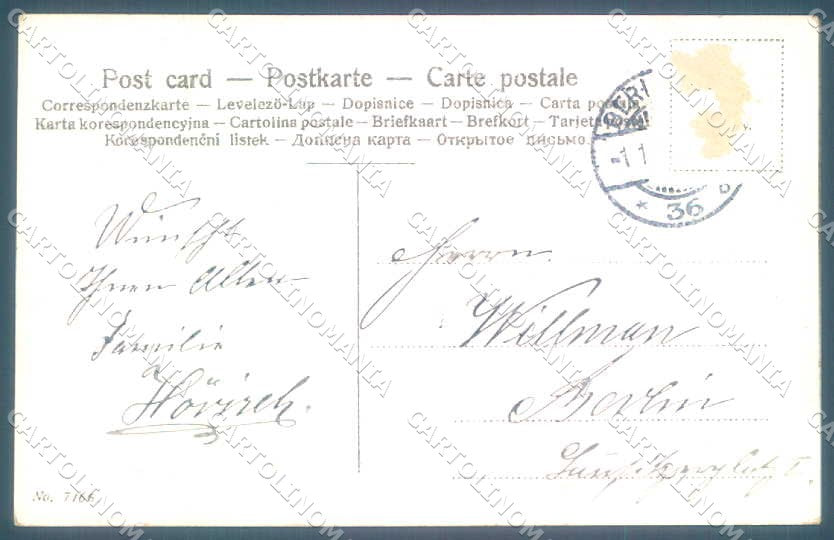 Post card — Postkarte — Carte postale
Correspondenzkarte — Levelező-Lap — Dopisnice — Dopisnica — Carta postala
Karta korespondencyjna — Cartolina postale — Briefkaart — Brefkort — Tarjeta postal
Korespondenční listek — Дописна карта — Открытое письмо.
36
Wünscht
Ihnen Allen
Familie
Herrn
Willman
Berlin
No. 7166
CARTOLINOMANIA